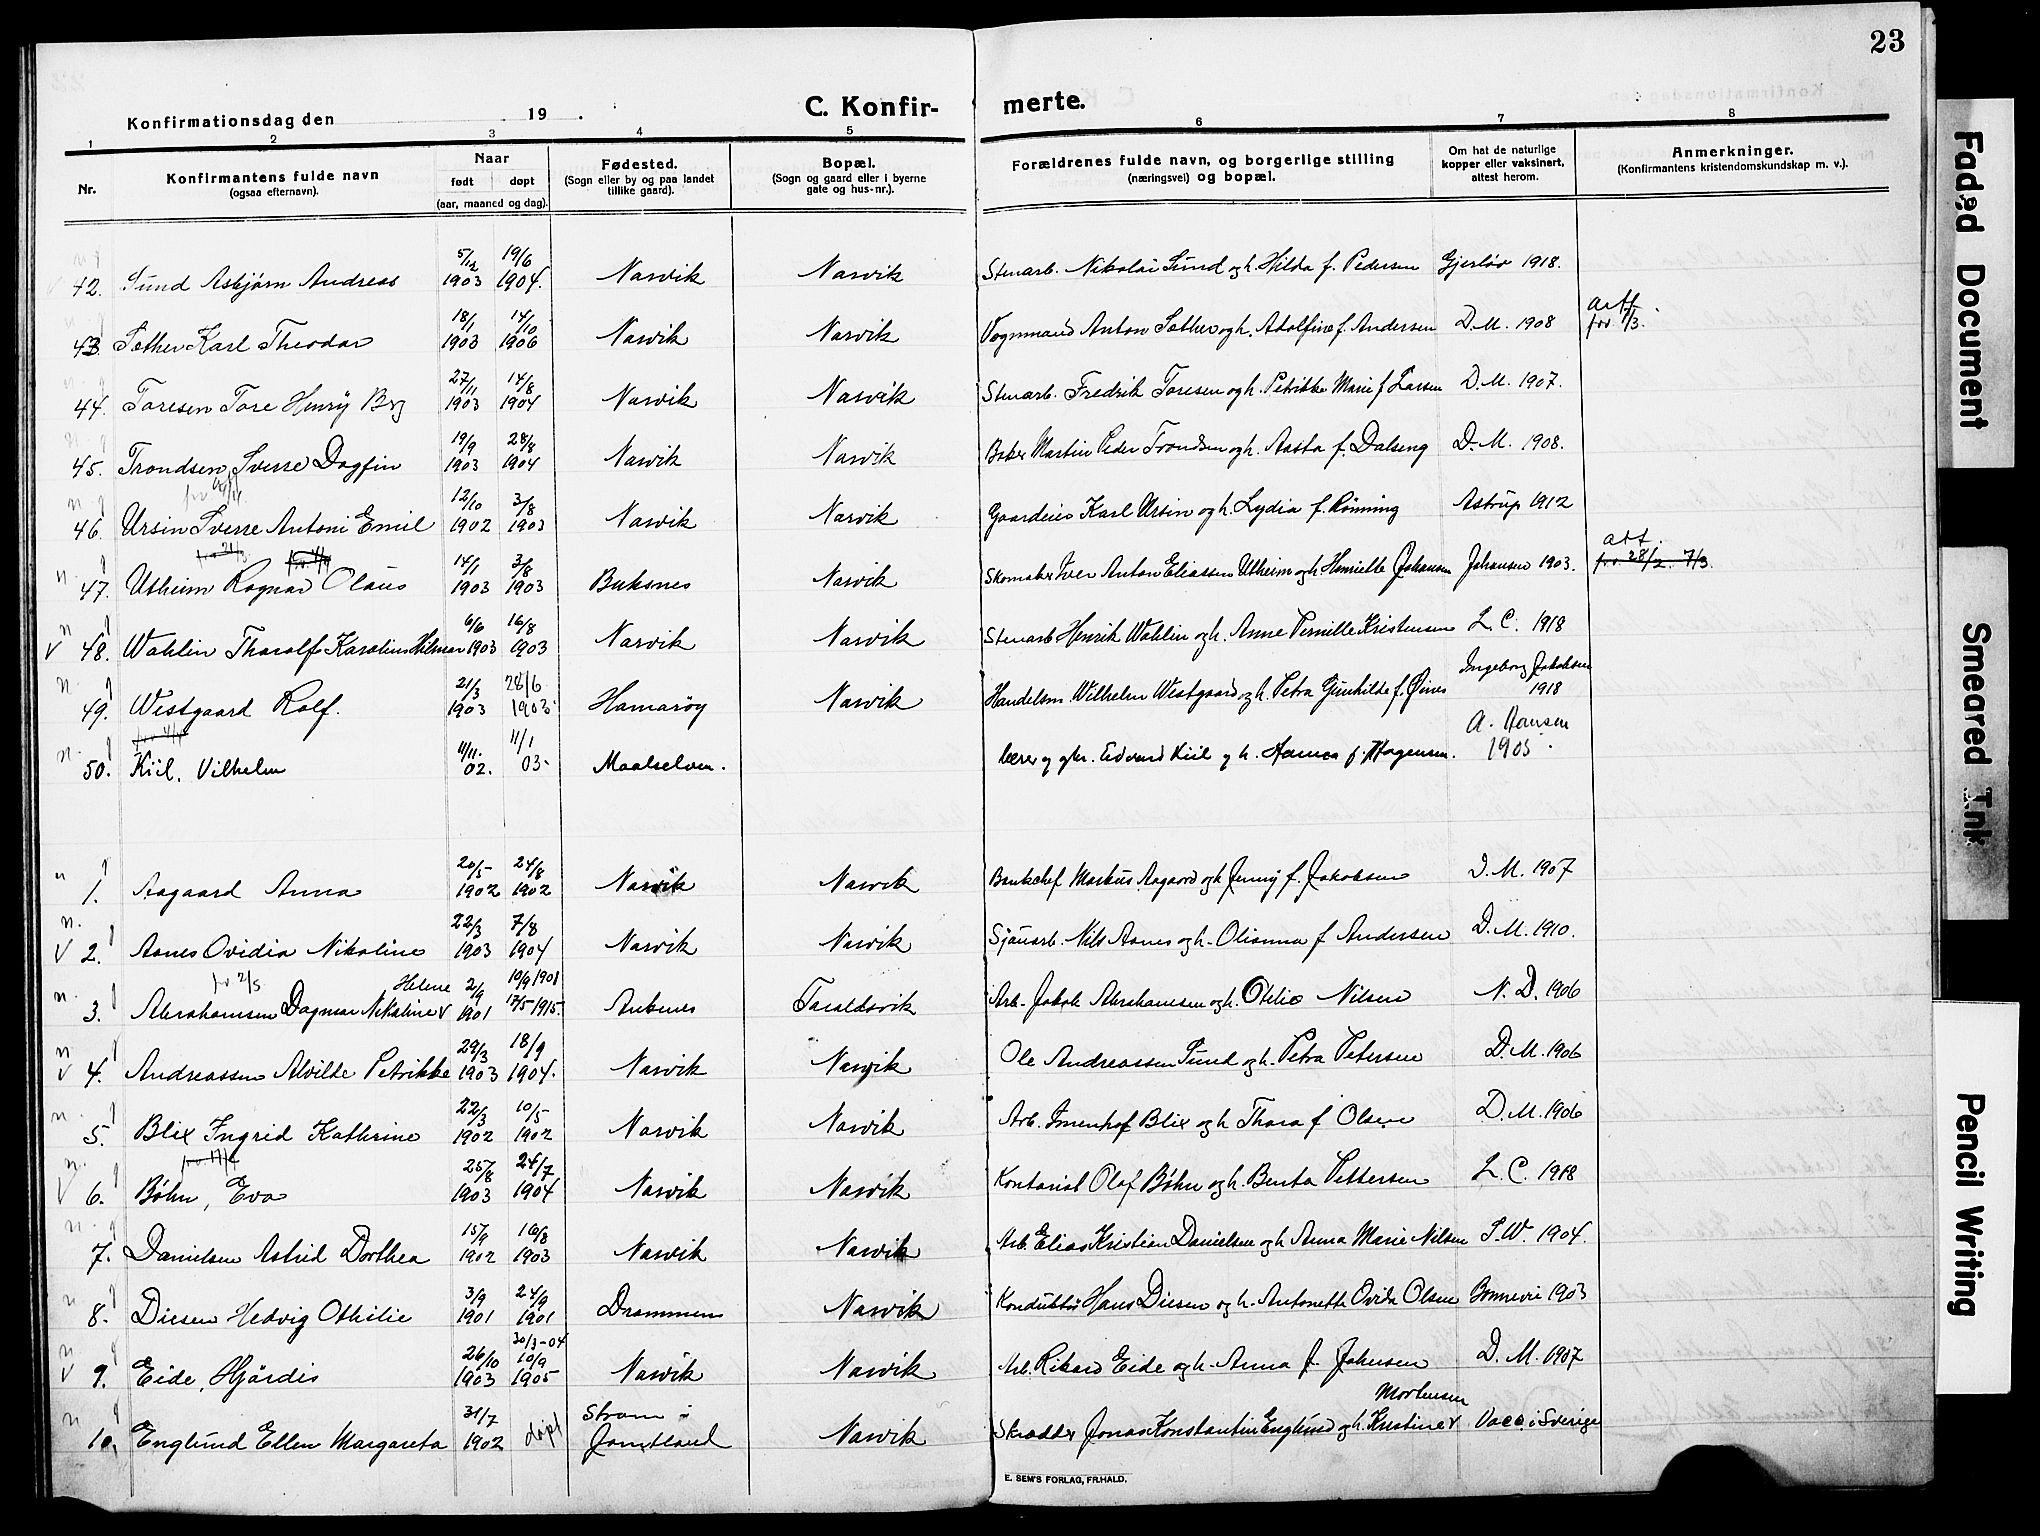 23
C. Konfir- merte.
Konfirmationsdag den 19 .
1 2 3 4 5 6 7 8
Nr.
Konfirmantens fulde navn
(ogsaa efternavn).
Naar
født døpt
(aar, maaned og dag).
Fødested.
(Sogn eller by og paa landet
tillike gaard).
Bopæl.
(Sogn og gaard eller i byerne
gate og hus-nr.).
Forældrenes fulde navn, og borgerlige stilling
(næringsvei) og bopæl.
Om hat de naturlige
kopper eller vaksinert,
attest herom.
Anmerkninger.
(Konfirmantens kristendomskundskap m. v.).
42. Sund Asbjørn Andreas 5/12 1903 19/6 1904. Narvik Narvik Stenarb. Nikolai Sund og h. Hilda f. Pedersen Gjerløv 1918.
43. Sæther Karl Theodor 18/1 1903 14/10 1906 Narvik Narvik Vognmand Anton Sæther og h. Adolfine f. Andersen D.M. 1908 att
44. Toresen Tore Henry Brz 27/11 1903 14/8 1904 Narvik Narvik Stenarb. Fredrik Toresen og h. Petrikke Marie f Larsen D.M. 1907.
45. Trondsen, Sverre Dagfin 19/9 1903 28/8 1904 Narvik Narvik Baker Martin Peder Trondsen og h. Aasta f. Dalseng D.M. 1908.
46. Ursin Sverre Antoni Emil 12/10 1902 3/8 1903 Narvik Narvik Gaardeier Karl Ursin og h. Lydia f. Rönning Astrup 1912
47. Utheim Ragnar Olaus 14/1 1903 3/8 1903 Buksnes Narvik Skomaker Iver Anton Eliassen Utheim og h. Henriette Johansen Johansen 1903. att. 28/2. 7/3.
48. Wahlin Tharalf Karolius Hilmar 6/6 1903 16/8 1903 Narvik Narvik Stenarb Henrik Wahlin og h. Anne Pernille Kristensen L.C. 1918
49. Westgaard Rolf. 21/3 1903 28/6 1903. Hamarøy Narvik Handelsm. Wilhelm Westgaard og h. Petra Gunhilde f. Øines Ingeborg Jakobsen 1918
50. Kiil, Vilhelm 11/11. 02. 11/1 03. Maalselven. Lærer og gbr. Edvard Kiil og h. Hanna f. Hagensen. A. Hansen 1903.
1. Aagaard Anna 20/5 1902 24/8 1902 Narvik Narvik Bankchef Markus Aagaard og h Jenny f. Jakobsen D.M. 1907
2. Aanes Ovidia Nikoline 22/3 1903 7/8 1904 Narvik Narvik Sjöuarb. Nils Aanes og h. Olianna f Andersen D.M. 1910.
3. Abrahamsen Dagmar Nikoline v Helene 2/9 1901 10/9 1901 17/5 1915. Ankenes Taraldsvik Arb. Jakob Abrahamsen og h. Otilie Nilsen N.D. 1906
4. Andreassen Alvilde Petrikke 29/3 1903 18/9 1904. Narvik Narvik Ole Andreassen Sund og h. Petra Petersen D.M. 1906
5. Blix Ingrid Kathrine 22/3 1902 10/5 1902 Narvik Narvik Arb. Imenhof Blix og h Thora f Olsen D.M. 1906
6. Bøhn, Eva 25/8 1903 24/7 1904 Narvik Narvik Kontorist Olaf Bøhn og h. Benta Pettersen L.C. 1918
7. Danielsen Astrid Dorthea 15/9 1902 16/8 1903 Narvik Narvik Arb. Elias Kristian Danielsen og h Anna Marie Nilsen S.W. 1904.
8. Diesen Hedvig Othilie 3/9 1901 24/9 1901 Drammen Narvik Konduktør Hans Diesen og h. Antonette Ovida Olsen Bonnevie 1903
9. Eide, Hjördis 26/10 1903 30/3-04 10/9 1905 Narvik Narvik Arb. Rikard Eide og h. Anna f. Johnsen D.M. 1907
10. Englund Ellen Margareta 31/7 1902 døpt Strøm i Jamtland Narvik Skrædder Jonas Konstantin Englund og h. Kristine v Mortensen Vacc. i Sverige
E. SEM'S FORLAG, FR.HALD.
Faded Document
Smeared Ink
Pencil Writing